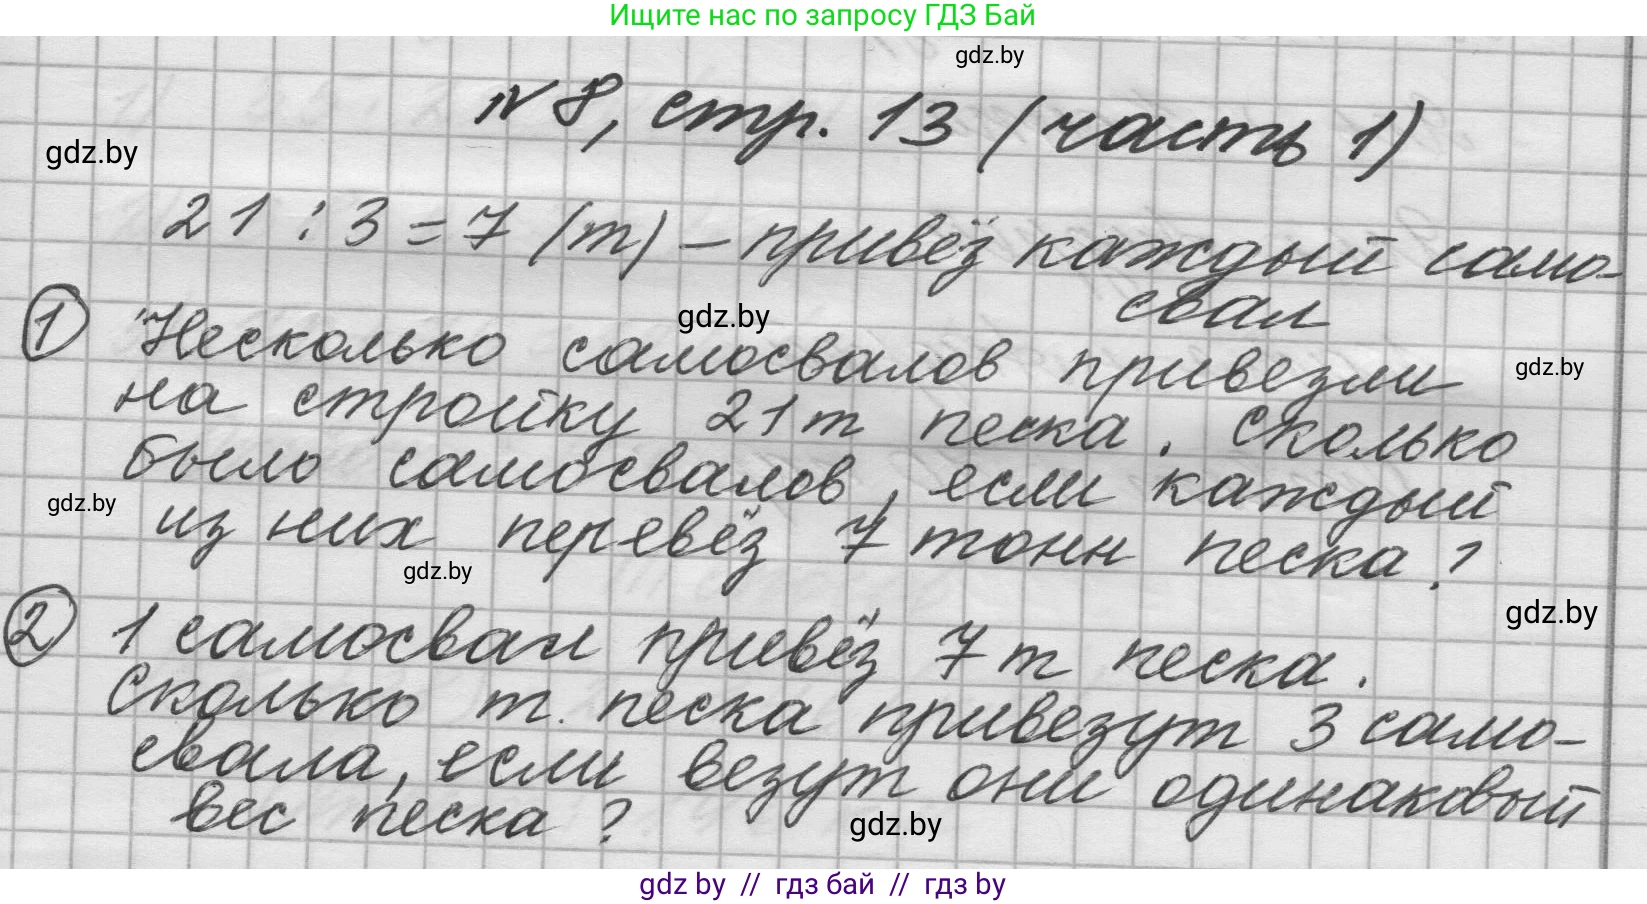 Ищите нас по запросу ГДЗ Бай
gdz.by
N8, стр. 13 (часть 1)
gdz.by
21 : 3 = 7 (т) – привёз каждый само-
свал
gdz.by
1 Несколько самосвалов привезли
gdz.by
на стройку 21 т песка. Сколько
было самосвалов, если каждый
gdz.by
из них перевёз 7 тонн песка?
gdz.by
gdz.by
2 1 самосвал привёз 7 т песка.
Сколько т. песка привезут 3 само-
свала, если везут они одинаковый
вес песка?
gdz.by
gdz by // гдз бай // гдз by